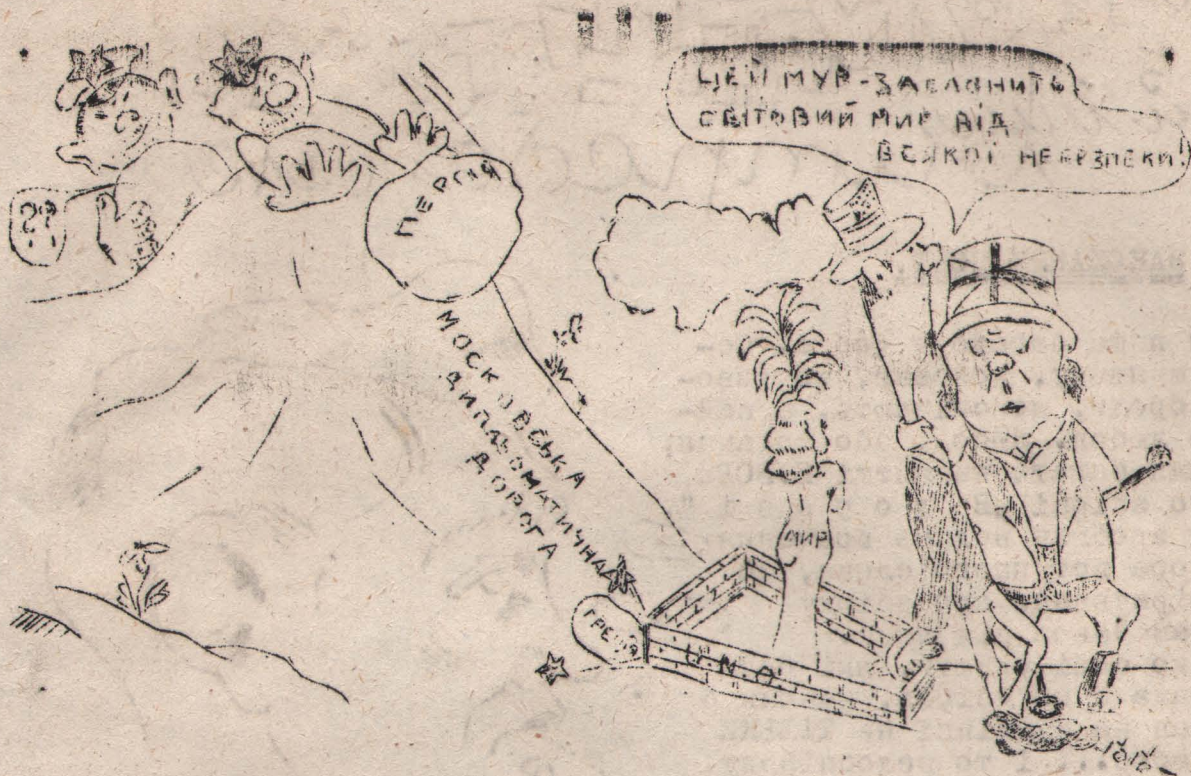 ЦЕЙ МУР-ЗАСЛОНИТЬ
СВІТОВИЙ МИР ВІД
ВСЯКОЇ НЕБЕЗПЕКИ!
??
ПЕРСІЯ
МОСКОВСЬКА
ДИПЛЬОМАТИЧНА
ДОРОГА
МИР
ГРЕЦІЯ
UNO